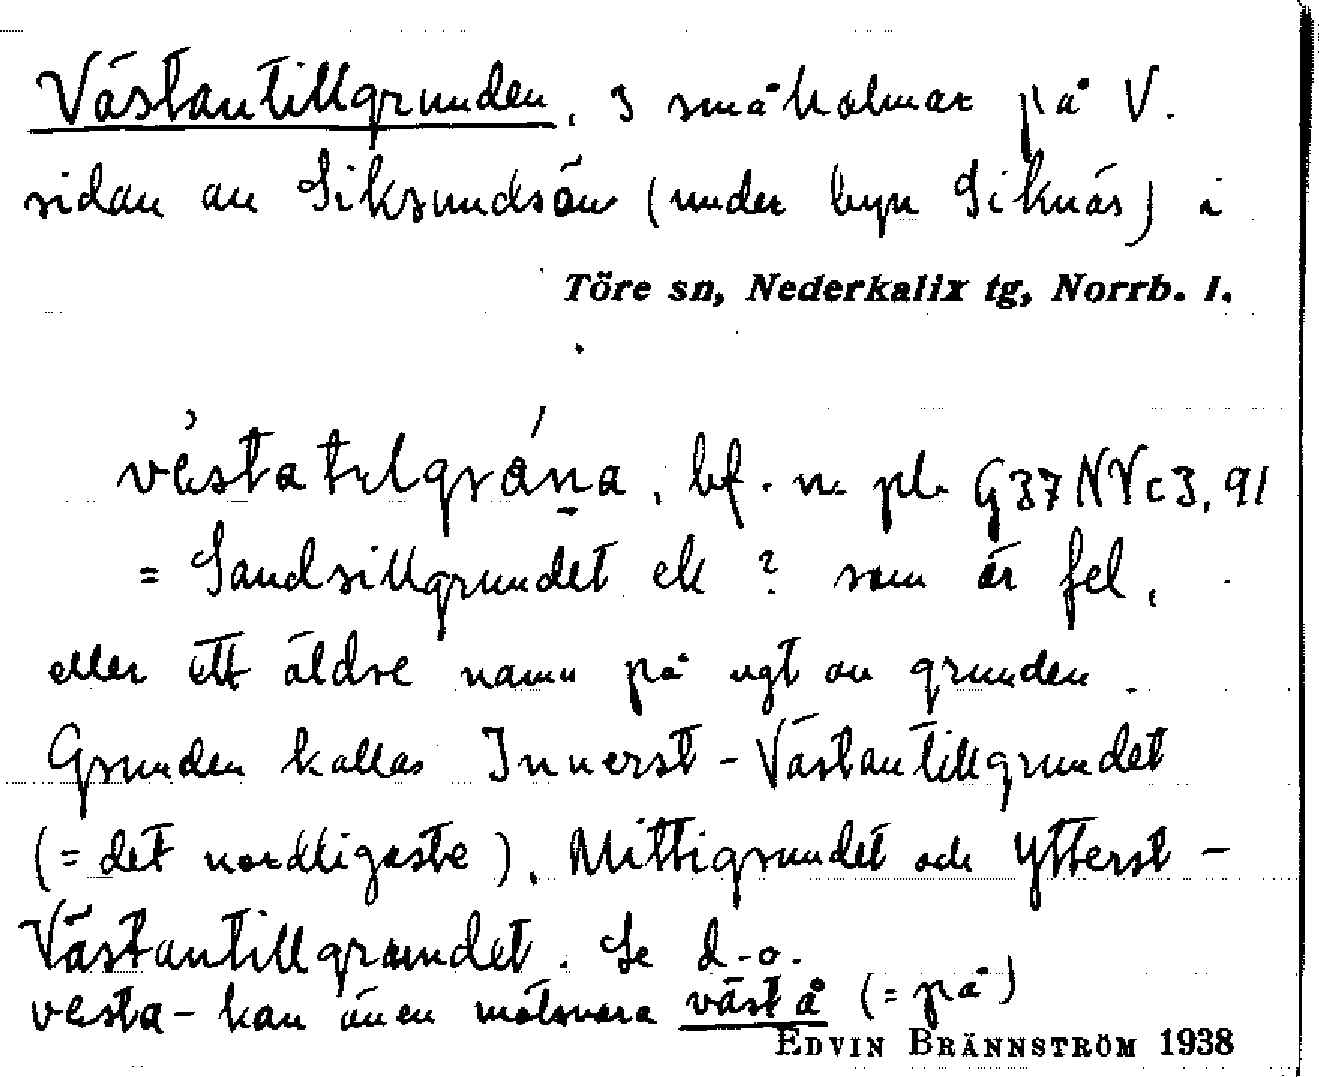 Västantillgrunden, 3 småholmar på V.
sidan av Siksundsön (under byn Siknäs) i
Töre sn, Nederkalix tg, Norrb. l.
vèstatelgrán̥a, bf. n. pl. G37NVc3,91
= Sandsillgrundet ek ? som är fel,
eller ett äldre namn på ngt av grunden.
Grunden kallas Innerst-Västantillgrundet
(= det nordligaste), Mittigrundet och Ytterst-
Västantillgrundet. Se d.o.
vesta- kan även motsvara väst å (= på)
EDVIN BRÄNNSTRÖM 1938